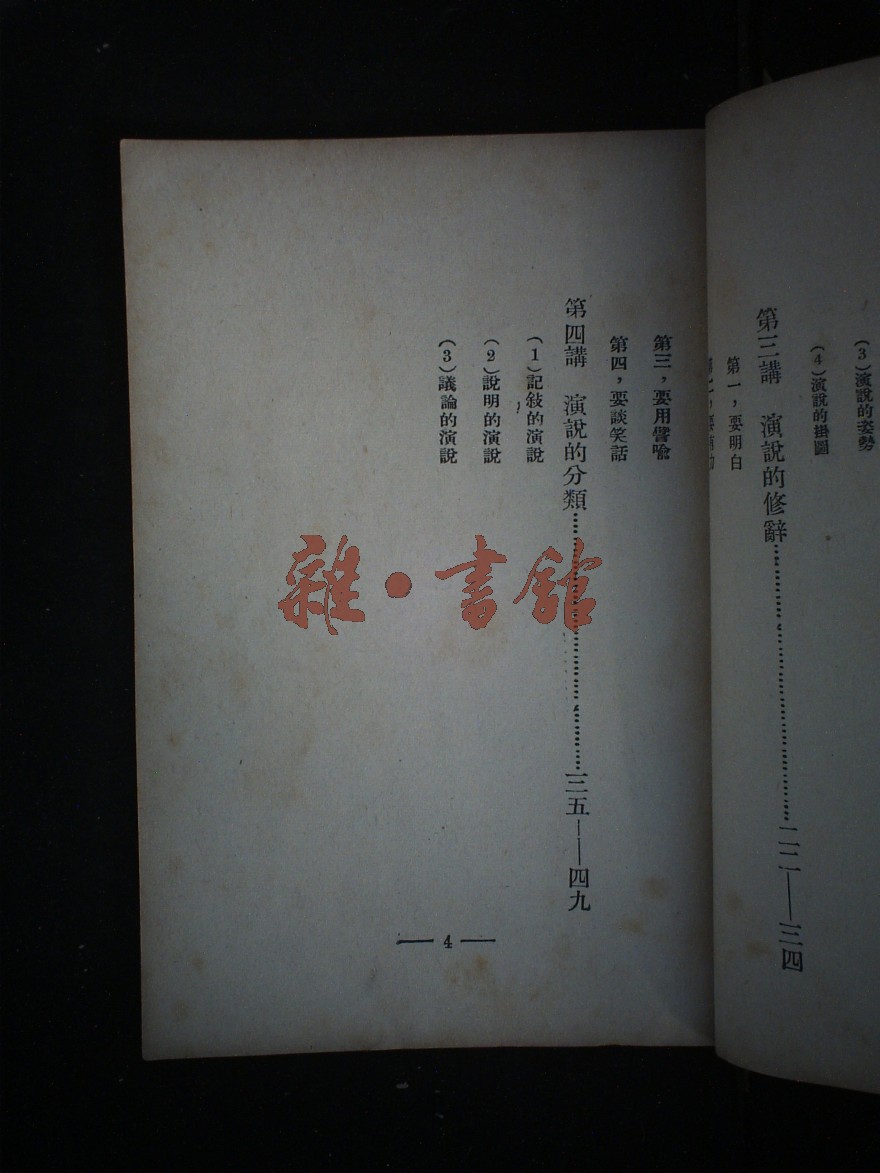 (3)演說的姿勢
(4)演說的掛圖
第三講　演說的修辭……二二——三四
第一，要明白
第三，要用譬喻
第四，要談笑話
第四講　演說的分類……三五——四九
(1)記敍的演說
(2)說明的演說
(3)議論的演說
— 4 —
雜·書館